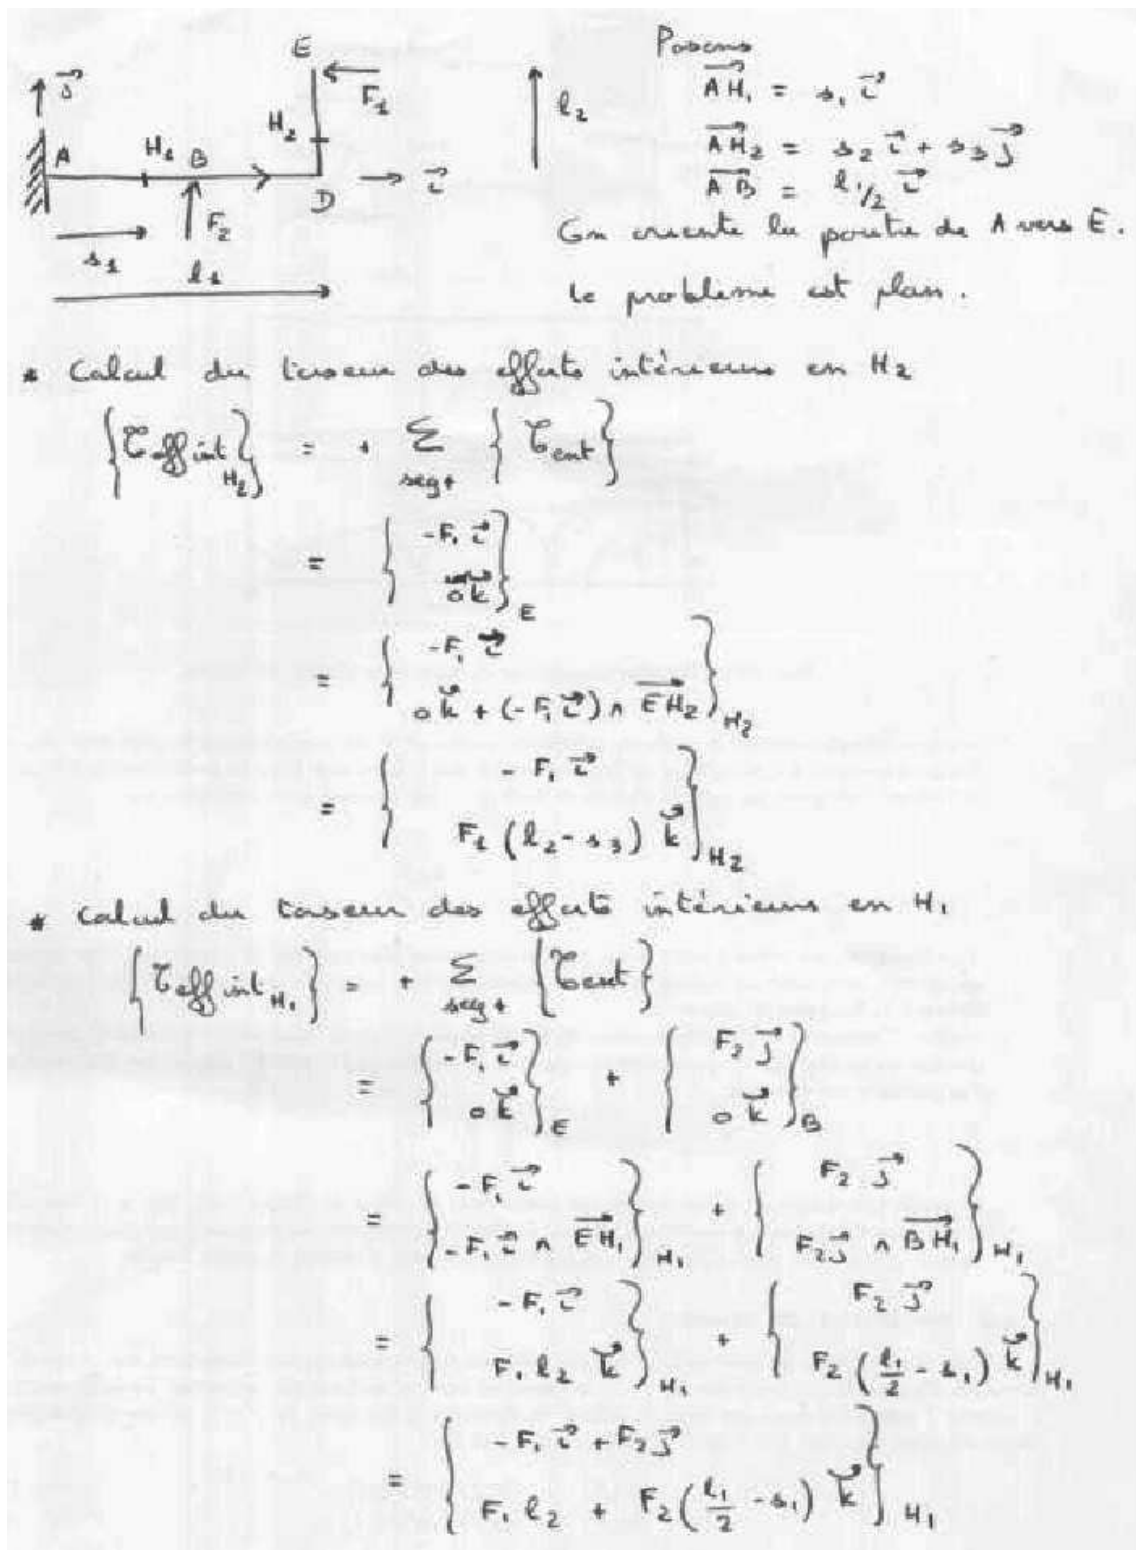 Posons
E
j⃗
F₁
l₂
AH₁ = s₁ i⃗
H₂
A H₁ B
AH₂ = s₂ i⃗ + s₃ j⃗
i⃗
AB = l₁/₂ i⃗
D
F₂
On oriente la poutre de A vers E.
s₁
l₁
le problème est plan.
* Calcul du torseur des efforts intérieurs en H₂
{ 𝒯eff int H₂ } = + Σ seg+ { 𝒯ext }
= { -F₁ i⃗ / 0 k⃗ } E
= { -F₁ i⃗ / 0 k⃗ + (-F₁ i⃗) ∧ EH₂ } H₂
= { -F₁ i⃗ / F₁ (l₂ - s₃) k⃗ } H₂
* Calcul du torseur des efforts intérieurs en H₁
{ 𝒯eff int H₁ } = + Σ seg+ { 𝒯ext }
= { -F₁ i⃗ / 0 k⃗ } E + { F₂ j⃗ / 0 k⃗ } B
= { -F₁ i⃗ / -F₁ i⃗ ∧ EH₁ } H₁ + { F₂ j⃗ / F₂ j⃗ ∧ BH₁ } H₁
= { -F₁ i⃗ / F₁ l₂ k⃗ } H₁ + { F₂ j⃗ / F₂ (l₁/2 - s₁) k⃗ } H₁
= { -F₁ i⃗ + F₂ j⃗ / F₁ l₂ + F₂ (l₁/2 - s₁) k⃗ } H₁